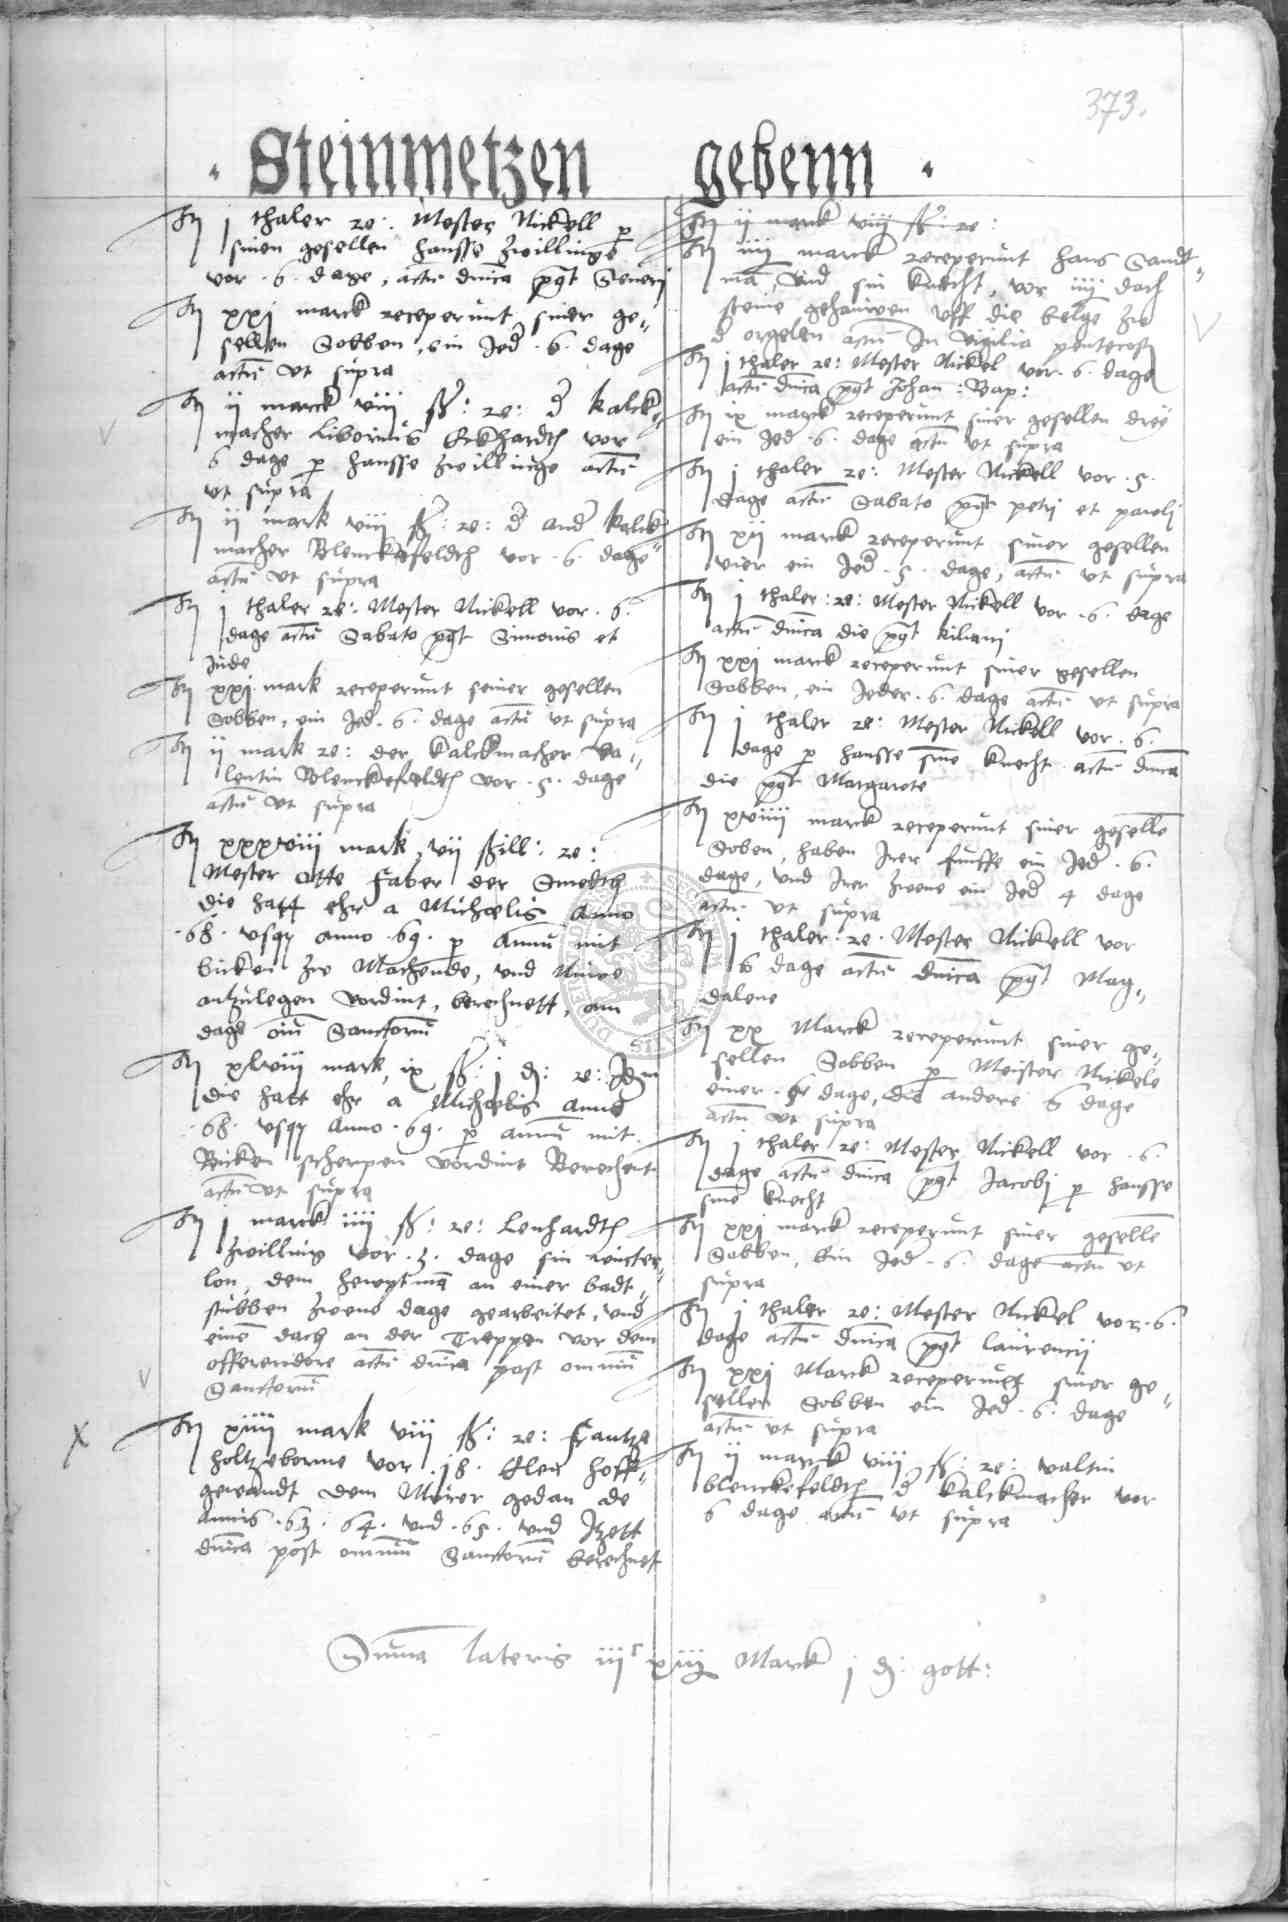 373.
Steinmetzen gebenn
It j thaler re: Mester Nickell p
sinen gesellen Hansse Zwillinge
vor .6. dage, actu dnica pgt Severi
It xxj marck receperunt siner ge„
sellen Sobben, ein Jed .6. dage
actu ut supra
It ij marck viij ß: re: d kalck„
macher Liborius Eckhardth vor
6 dage p Hansse Zwillinge actu
ut supra
It ij mark viij ß: re: d and kalck
macher Blenckefeldth vor .6. dage
actu ut supra
It j thaler re: Mester Nickell vor .6.
dage actu Sabato pgt Simonis et
Jude
It xxj mark receperunt seiner gesellen
Sobben, ein Jed .6. dage actu ut supra
It ij mark re: der kalckmacher Va„
lentin Blenckefeldth vor .5. dage
actu ut supra
It xxxviij mark, vij ßill: re:
Mester Otte Faber der Smedth
die hatt ehr a Michaelis Anno
.68. usqz anno .69. p Annu mit
bicken zu Machende, und Nuwe
antzulegen vordint, berechnett, am
dage oiu Sanctoru
It xlviij mark, ix ß: j d: re: Idem
die hatt ehr a Michaelis Anno
.68. usqz Anno .69. p annu mit
Bicken scherpen vordint Berechent
actu ut supra
It j marck iiij ß: re: Lenhardth
Zwilling vor .3. dage sin
lon, dem hewptma an einer badt„
stubben zwene dage gearbeitet, und
einen dach an der Treppen vor dem
offerendore actu dnica post omniu
Sanctoru
It xiiij mark viij ß: re: Frantze
Holtzeborne vor .18. Elen hoff„
gewandt dem Meier gedan de
Annis .63. 64. und .65. und Itzett
dnica post omniu Sanctoru berechnet
It ij marck viij ß: re:
It iiij marck receperunt Hans Sandt„
ma, und sin knecht, vor iiij dach
steine gehauwen uff die belge zu
d orgelen actu In vigilia pentecost
It j thaler re: Mester Nickel vor .6. dage
actu dnica pgt Johan: Bap:
It ix marck receperunt siner gesellen drey
ein Jed .6. dage actu ut supra
It j thaler re: Mester Nickell vor .5.
dage actu Sabato pgt petri et pauli
It xij marck receperunt siner gesellen
vier ein Jed .5. dage, actu ut supra
It j thaler: re: Mester Nickell vor .6. dage
actu dnica die pgt Kiliani
It xxj marck receperunt siner gesellen
Sobben, ein Jeder .6. dage actu ut supra
It j thaler re: Mester Nickell vor .6.
dage p Hansse sine knecht actu dnica
die pgt Margarete
It xviiij marck receperunt siner geselle
Soben, haben Irer funffe ein Jed .6.
dage, und Irer zwene ein Jed 4 dage
actu ut supra
It j thaler: re. Mester Nickell vor
6 dage actu dnica pgt Mag„
dalene
It xx Marck receperunt siner ge„
sellen Sobben p Meister Nickele
einer dage, die andere 6 dage
actu ut supra
It j thaler re: Mester Nickell vor .6.
dage actu dnica pgt Jacobj p Hansse
sine knecht
It xxj marck receperunt siner geselle
Sobben, Ein Jed .6. dage actu ut
supra
It j thaler re: Mester Nickel vor .6.
dage actu dnica pgt Laurencij
It xxj Marck receperunt siner ge„
sellen Sobben ein Jed .6. dage
actu ut supra
It ij marck viij ß: re: valtin
blenckefeldth d kalckmacher vor
6 dage actu ut supra
Suma lateris iijc xiij Marck j d: gott: